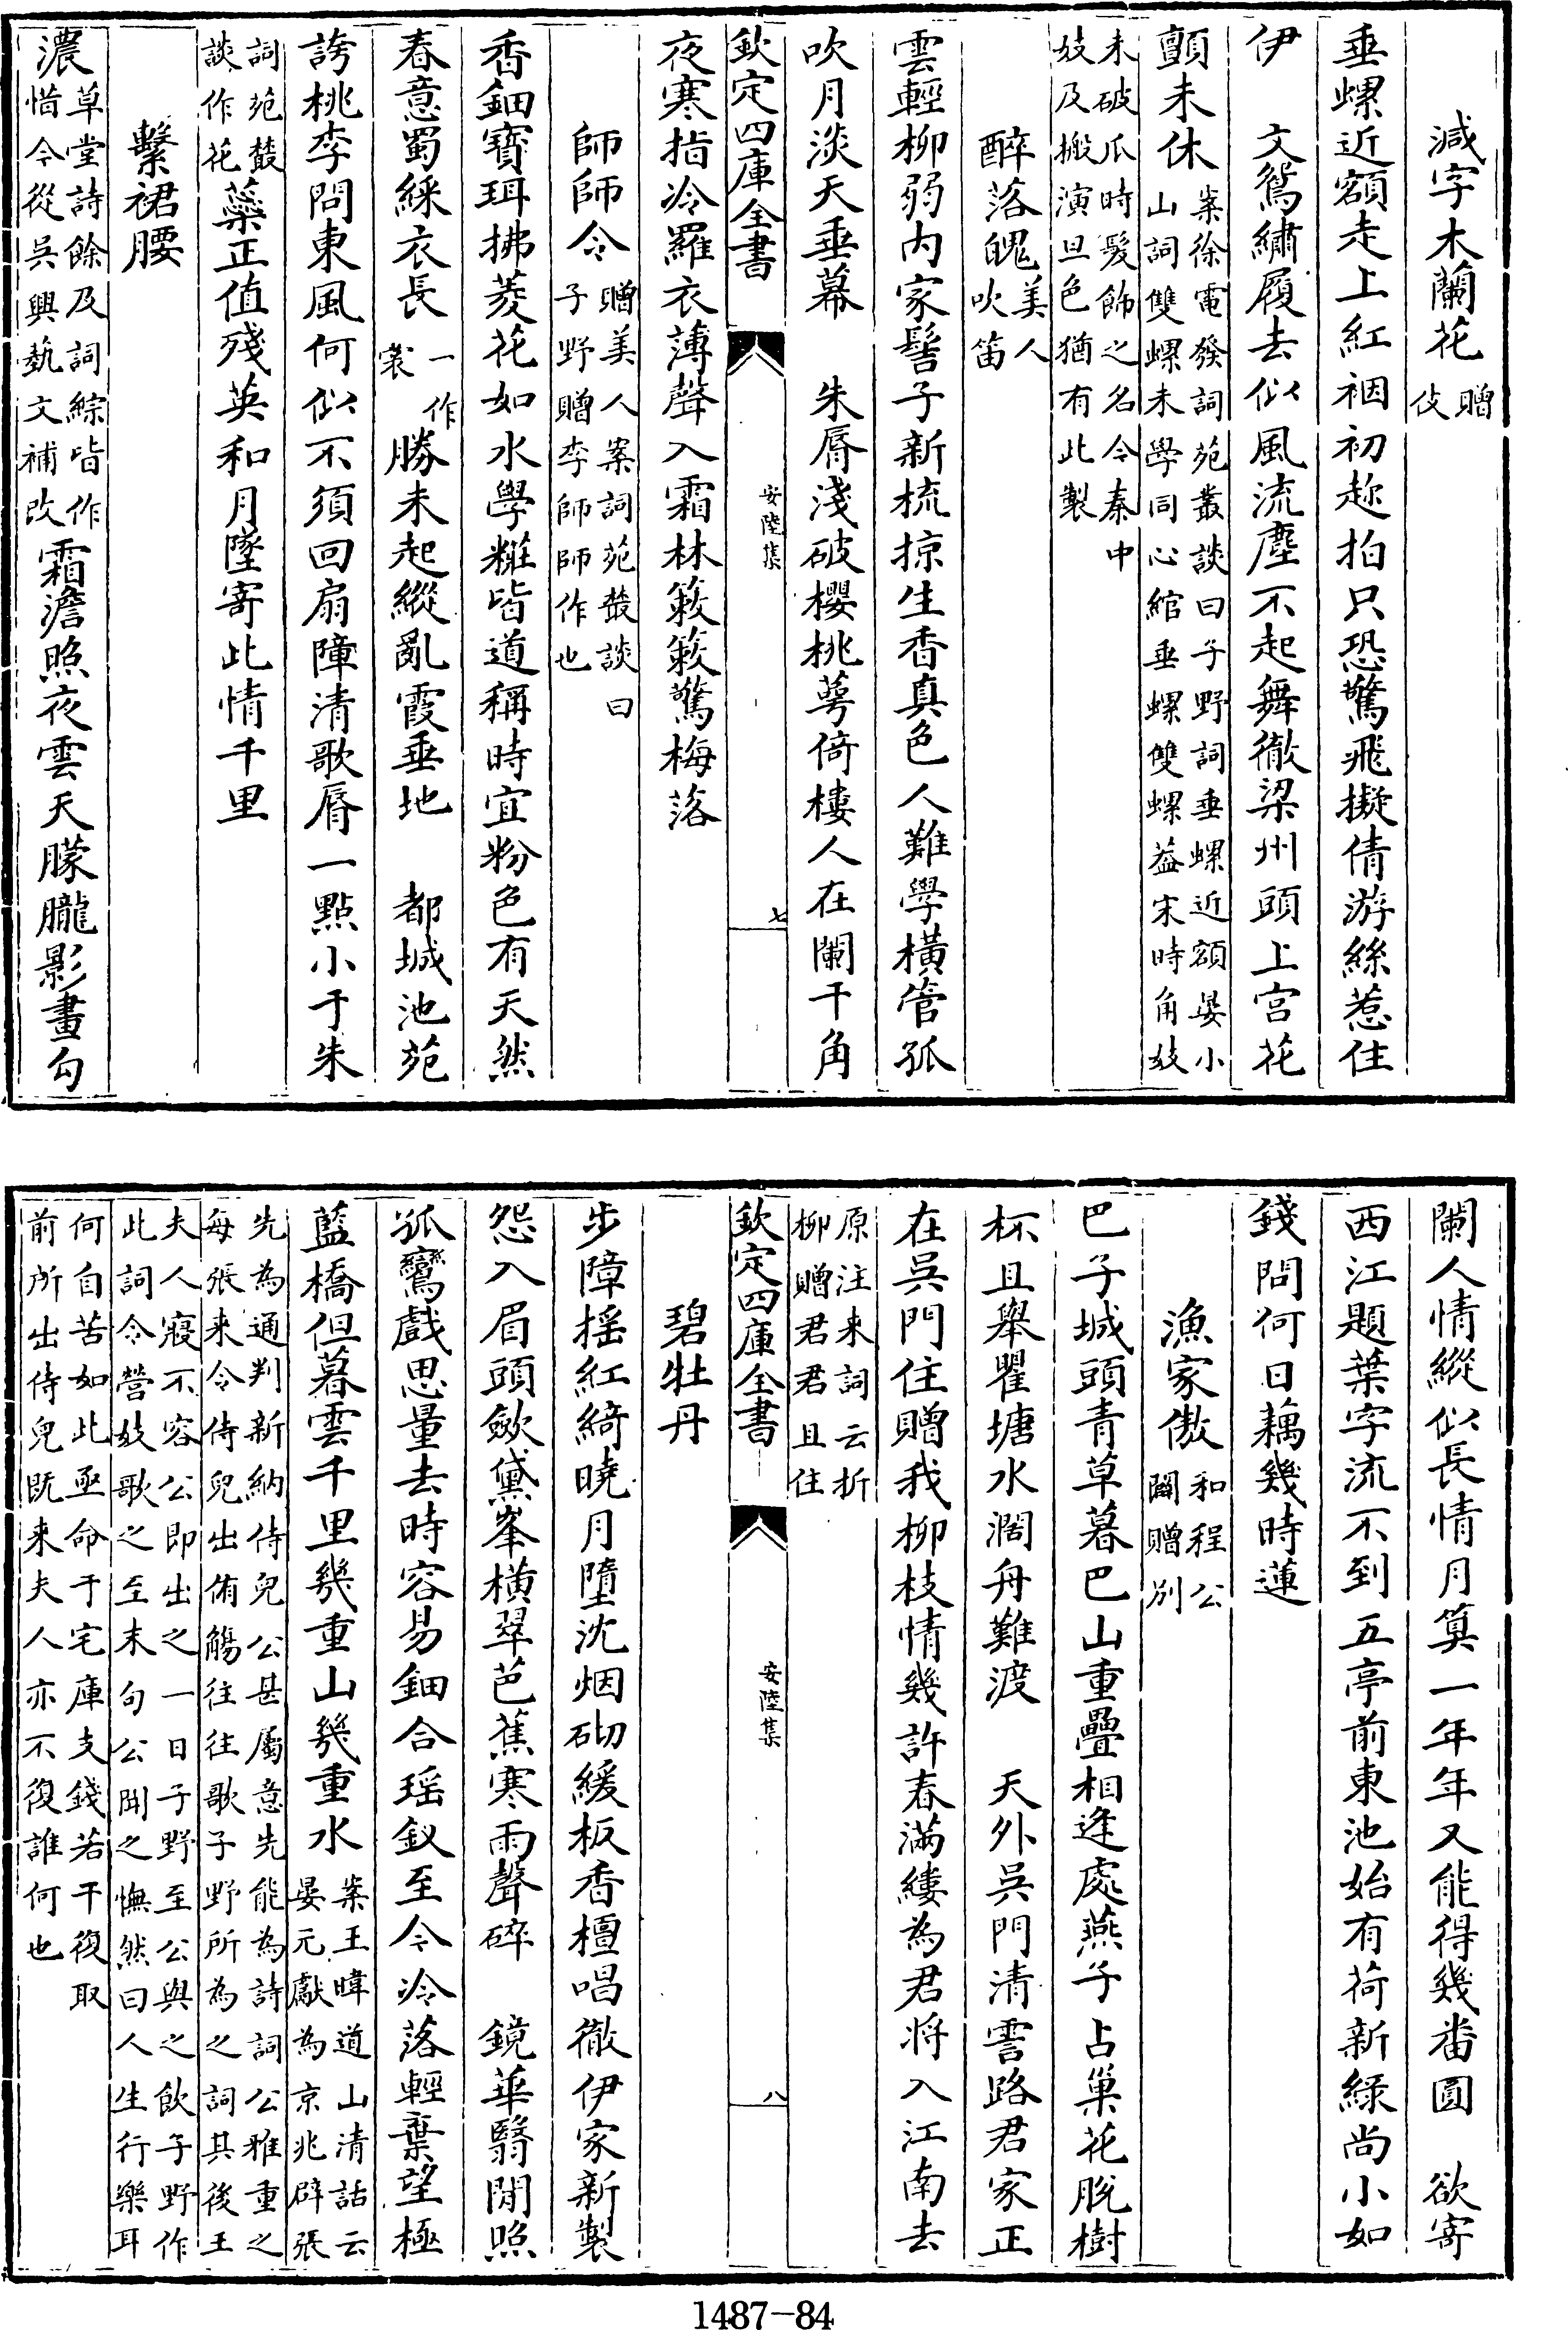 減字木蘭花贈伎
垂螺近額走上紅裀初趂拍只恐驚飛擬倩游絲惹住
伊　文鴛繡履去似風流塵不起舞徹梁州頭上宫花
顫未休案徐電發詞苑叢談曰子野詞垂螺近額晏小山詞雙螺未學同心綰垂螺雙螺葢宋時角妓
未破瓜時髮飾之名今秦中妓及搬演旦色猶有此製
醉落魄美人吹笛
雲輕柳弱内家髻子新梳掠生香真色人難學橫管孤
吹月淡天垂幕　朱脣淺破櫻桃萼倚樓人在闌干角
欽定四庫全書　安陸集　七
夜寒指冷羅衣薄聲入霜林簌簌驚梅落
師師令贈美人案詞苑叢談曰子野贈李師師作也
香鈿寶珥拂菱花如水學糚皆道稱時宜粉色有天然
春意蜀綵衣長一作裳勝未起縱亂霞垂地　都城池苑
誇桃李問東風何似不須回扇障清歌脣一點小于朱
詞苑叢談作花蘂正值殘英和月墜寄此情千里
繫裙腰
濃草堂詩餘及詞綜皆作惜今從吳興藝文補改霜澹照夜雲天朦朧影畫勾
闌人情縱似長情月算一年年又能得幾番圓　欲寄
西江題葉字流不到五亭前東池始有荷新緑尚小如
錢問何日藕幾時蓮
漁家傲和程公闢贈别
巴子城頭青草暮巴山重疊相逢處燕子占巢花脱樹
杯且舉瞿塘水濶舟難渡　天外吳門清霅路君家正
在吳門住贈我柳枝情幾許春滿縷為君将入江南去
原注来詞云折柳贈君君且住
欽定四庫全書　安陸集　八
碧牡丹
步障摇紅綺曉月墮沈烟砌緩板香檀唱徹伊家新製
怨入眉頭斂黛峯橫翠芭蕉寒雨聲碎　鏡華翳閒照
孤鸞戲思量去時容易鈿合瑶釵至今冷落輕棄望極
藍橋但暮雲千里幾重山幾重水案王暐道山清話云晏元獻為京兆辟張
先為通判新納侍兒公甚屬意先能為詩詞公雅重之每張来令侍兒出侑觴往往歌子野所為之詞其後王
夫人寖不容公即出之一日子野至公與之飲子野作此詞令營妓歌之至末句公聞之憮然曰人生行樂耳
何自苦如此亟命于宅庫支錢若干復取前所出侍兒既来夫人亦不復誰何也
1487-84